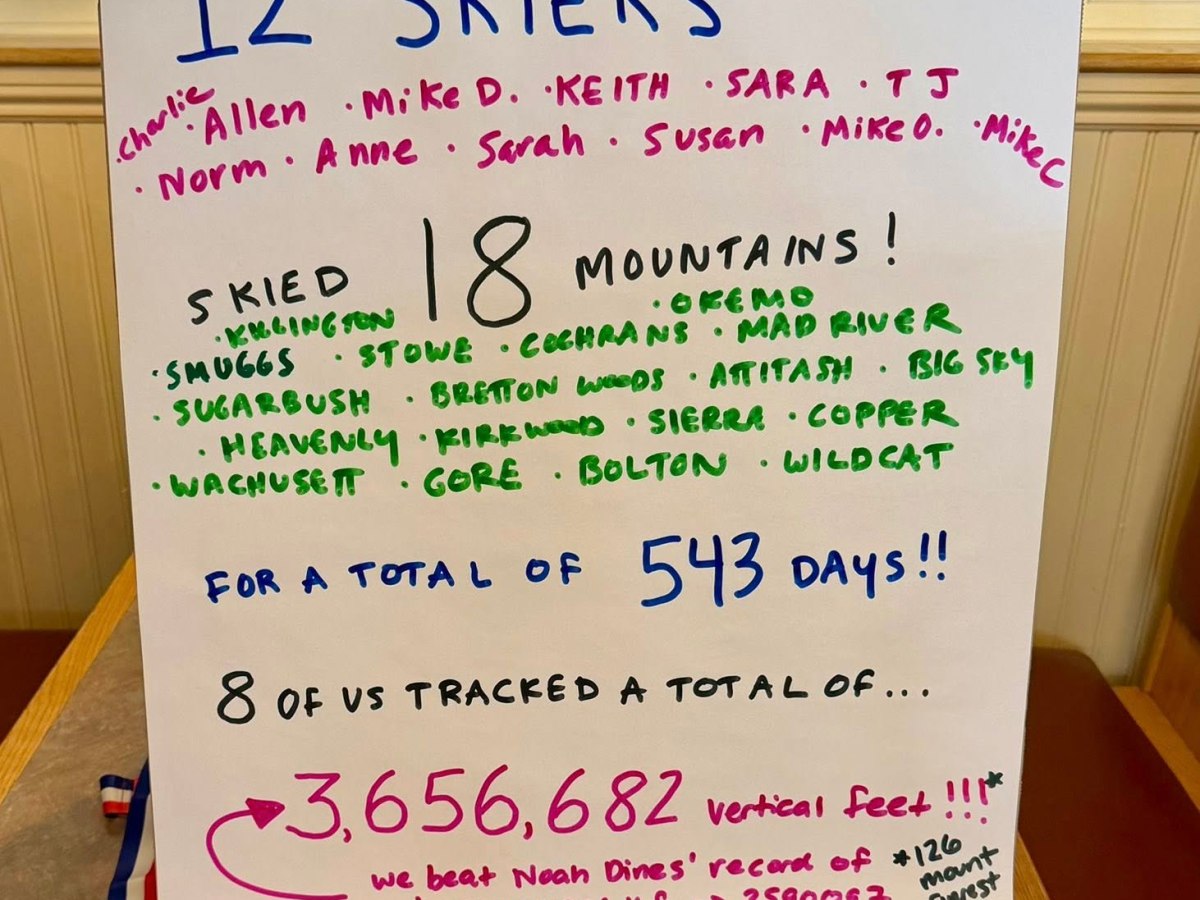 12 SKIERS
·Charlie ·Allen ·Mike D. ·KEITH ·SARA ·TJ
·Norm ·Anne ·Sarah ·Susan ·Mike O. ·Mike C
SKIED 18 MOUNTAINS!
·KILLINGTON ·OKEMO
·SMUGGS ·STOWE ·COCHRANS ·MAD RIVER
·SUGARBUSH ·BRETTON WOODS ·ATTITASH ·BIG SKY
·HEAVENLY ·KIRKWOOD ·SIERRA ·COPPER
·WACHUSETT ·GORE ·BOLTON ·WILDCAT
FOR A TOTAL OF 543 DAYS!!
8 OF US TRACKED A TOTAL OF...
3,656,682 vertical feet!!!*
we beat Noah Dines' record of
*126
mount